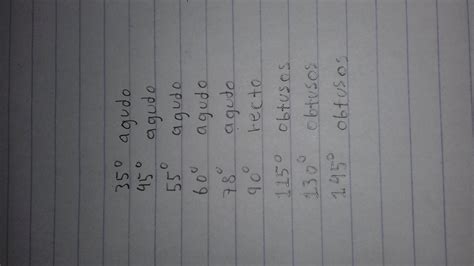 35° agudo
45° agudo
55° agudo
60° agudo
78° agudo
90° recto
115° obtusos
130° obtusos
145° obtusos